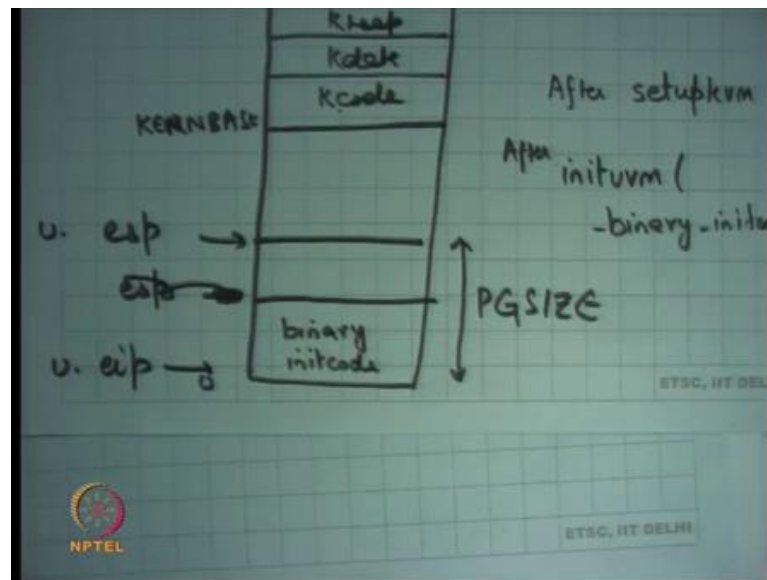 kheap
kdata
kcode
KERNBASE
After setupkvm
After inituvm (
-binary-initco
u. esp →
esp
PGSIZE
binary
initcode
u. eip →
0
ETSC, IIT DEL
NPTEL
ETSC, IIT DELHI